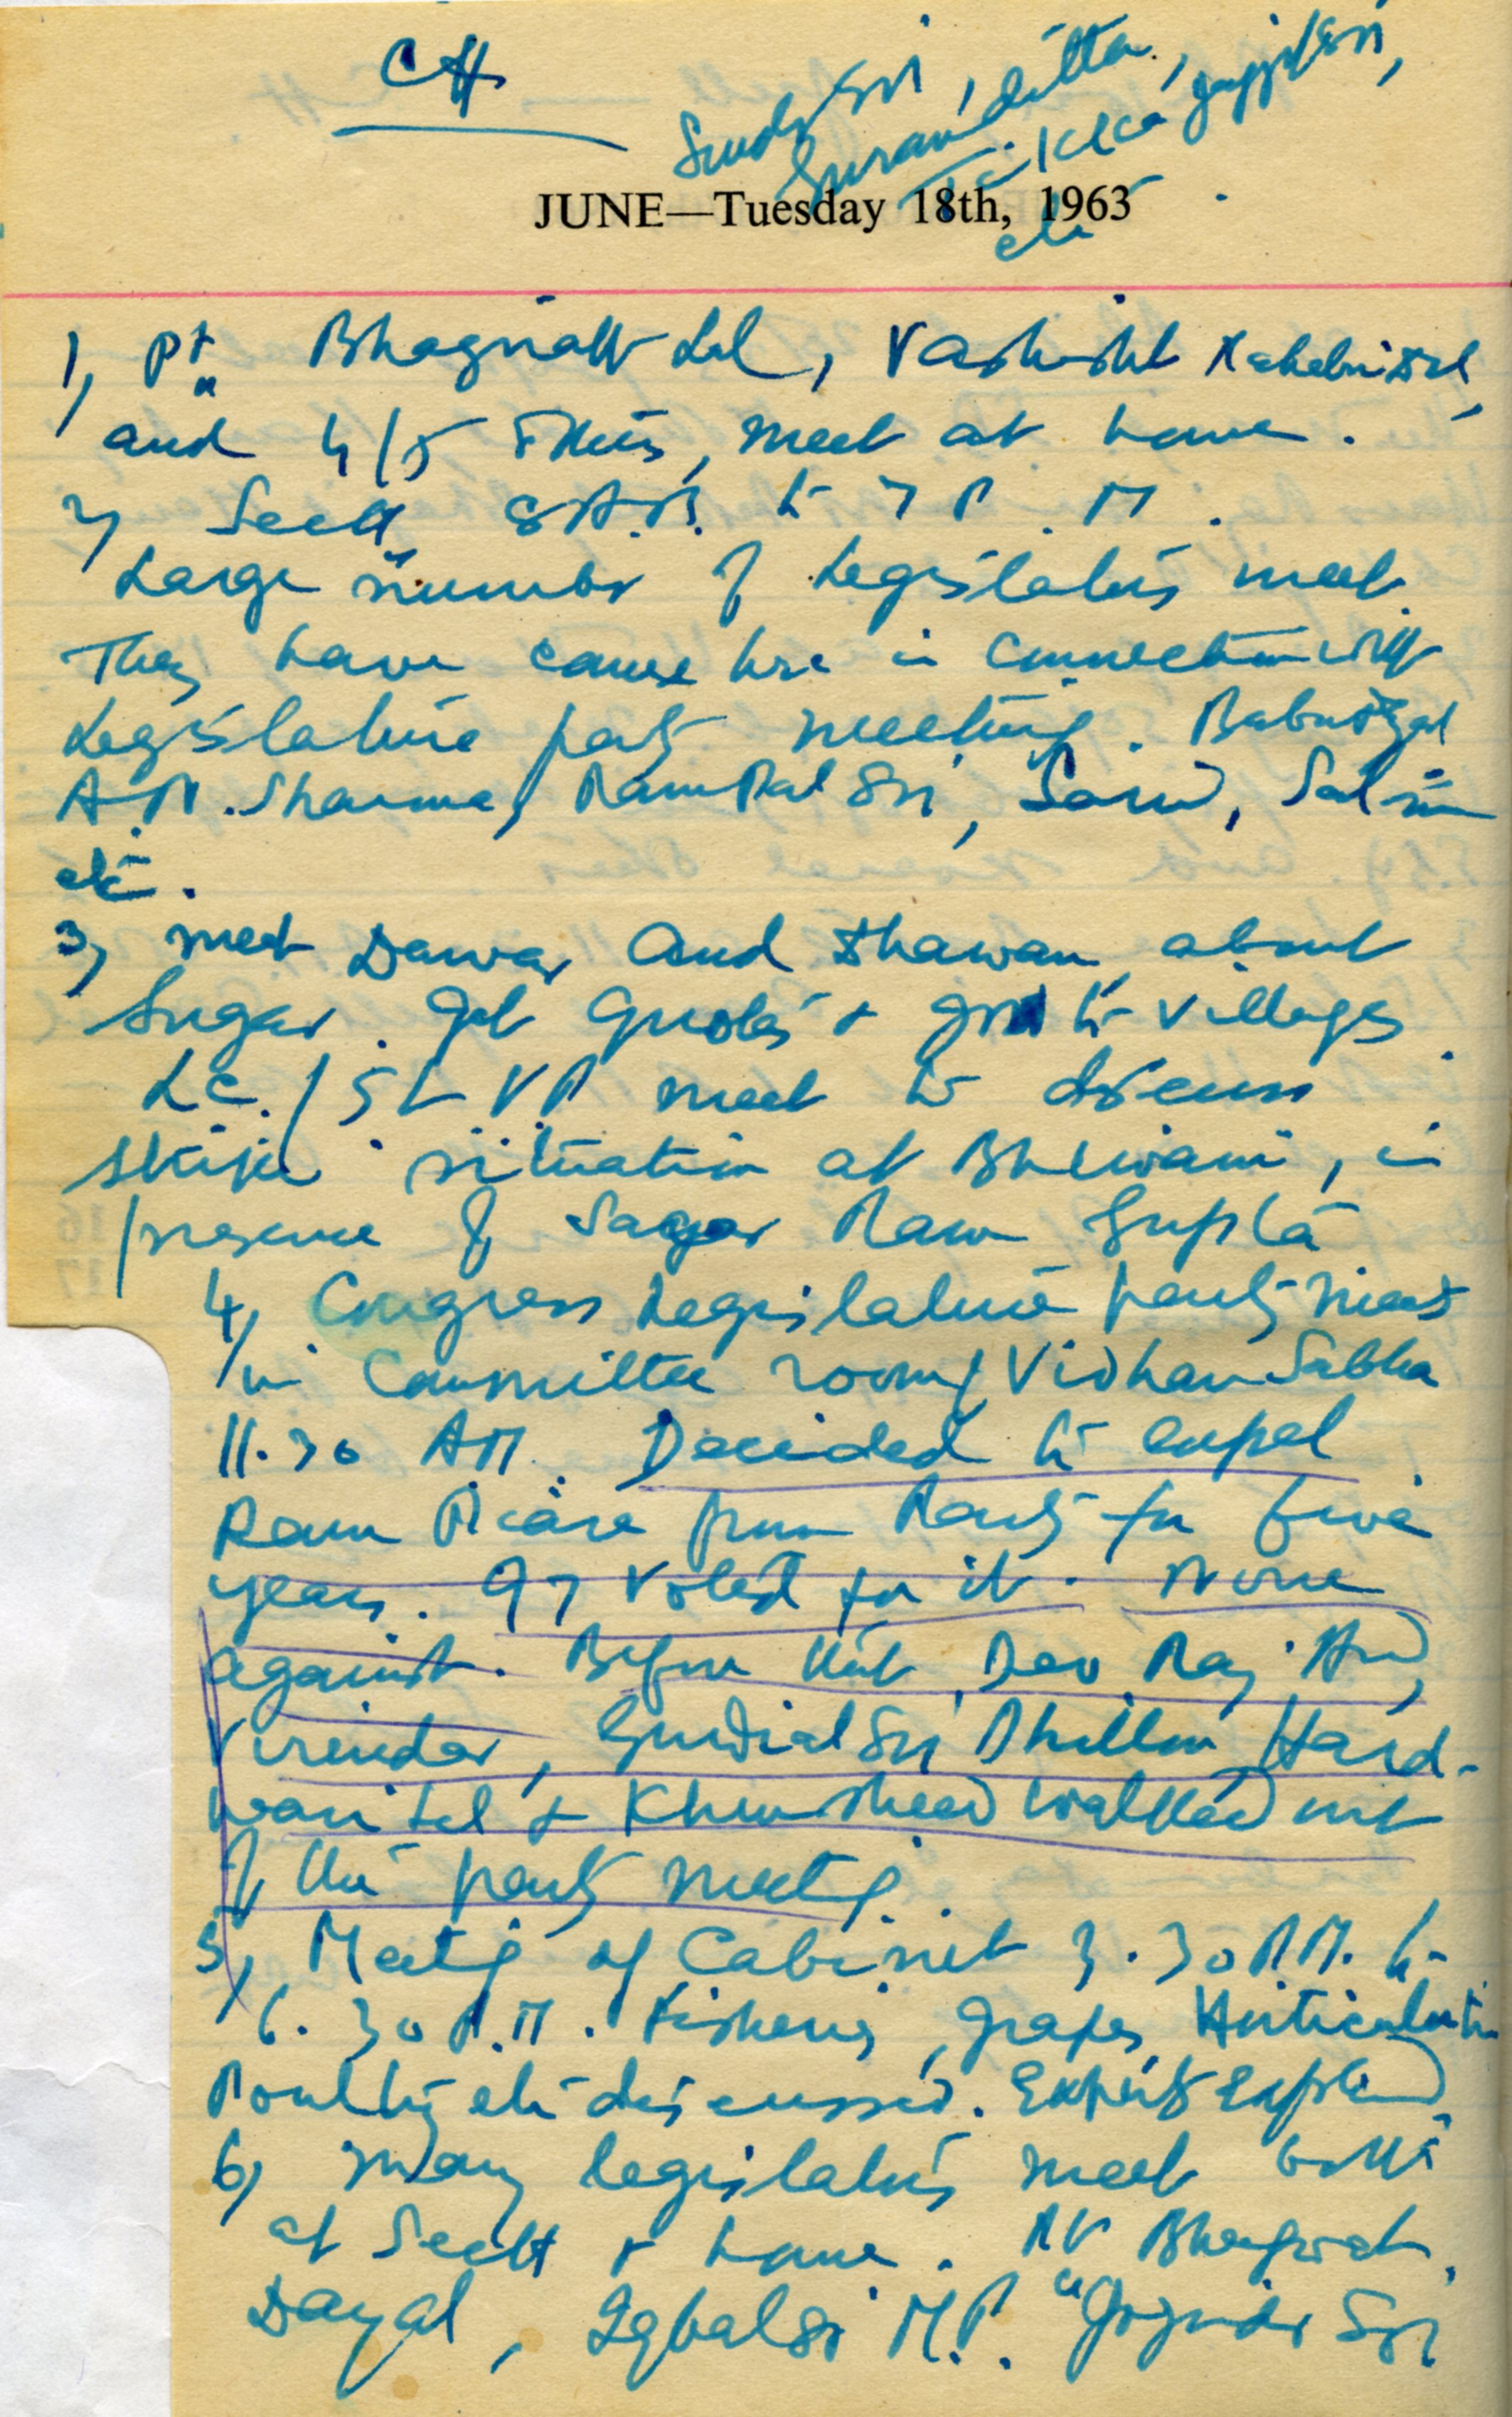 CH
JUNE—Tuesday 18th, 1963
etc
1, Pt. Bhagwath Lal, Vashisht
and 4/5 others, meet at home.
2, Sectt 8 A.M. to 7 P.M.
Large number of Legislators meet.
They have come here in connection with
Legislature party meeting. Babu Dyal
A.N. Sharma, Ram Pal Sn,
etc.
3, meet Dawar and Dhawan about
Sugar. Got Quotas + for villages
LC / meet to discuss
strike situation at Bhiwani, in
presence of Sagar Ram Gupta
4, Congress Legislature party meet
in Committee room, Vidhan Sabha
11.30 AM. Decided to expel
Ram Piara from Party for five
years. 97 voted for it. None
against. Before this Dev Raj
Virender, Gurdial Sn Dhillon, Hard-
wari Lal + Khurshed walked out
of the party meetg.
5, Meetg of Cabinet 3.30 P.M. to
6.30 P.M. Fisheries, grapes, Horticulture
Poultry etc discussed. Experts explained
6, Many legislators meet both
at Sectt + home. Pt Bhagwat
Dayal, Iqbal Sn M.P. Joginder Sn